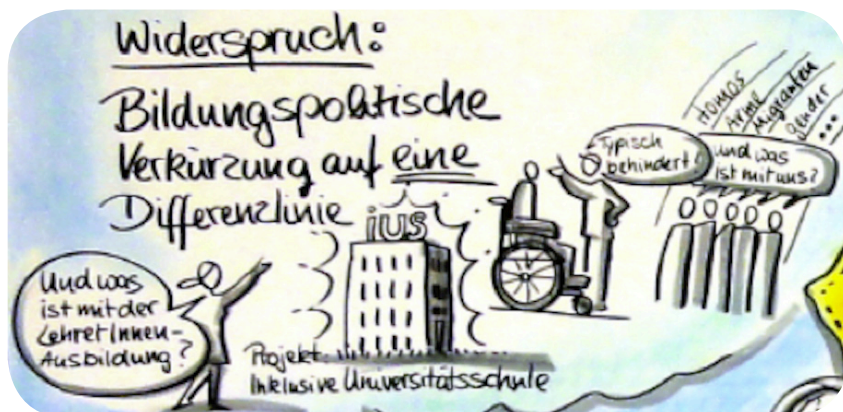 Widerspruch:
Bildungspolitische
Verkürzung auf eine
Differenzlinie
Homos
Arme
Migranten
Gender
...
Typisch
behindert!
Und was
ist mit uns?
ius
Und was
ist mit der
LehrerInnen-
Ausbildung?
Projekt:
Inklusive Universitätsschule